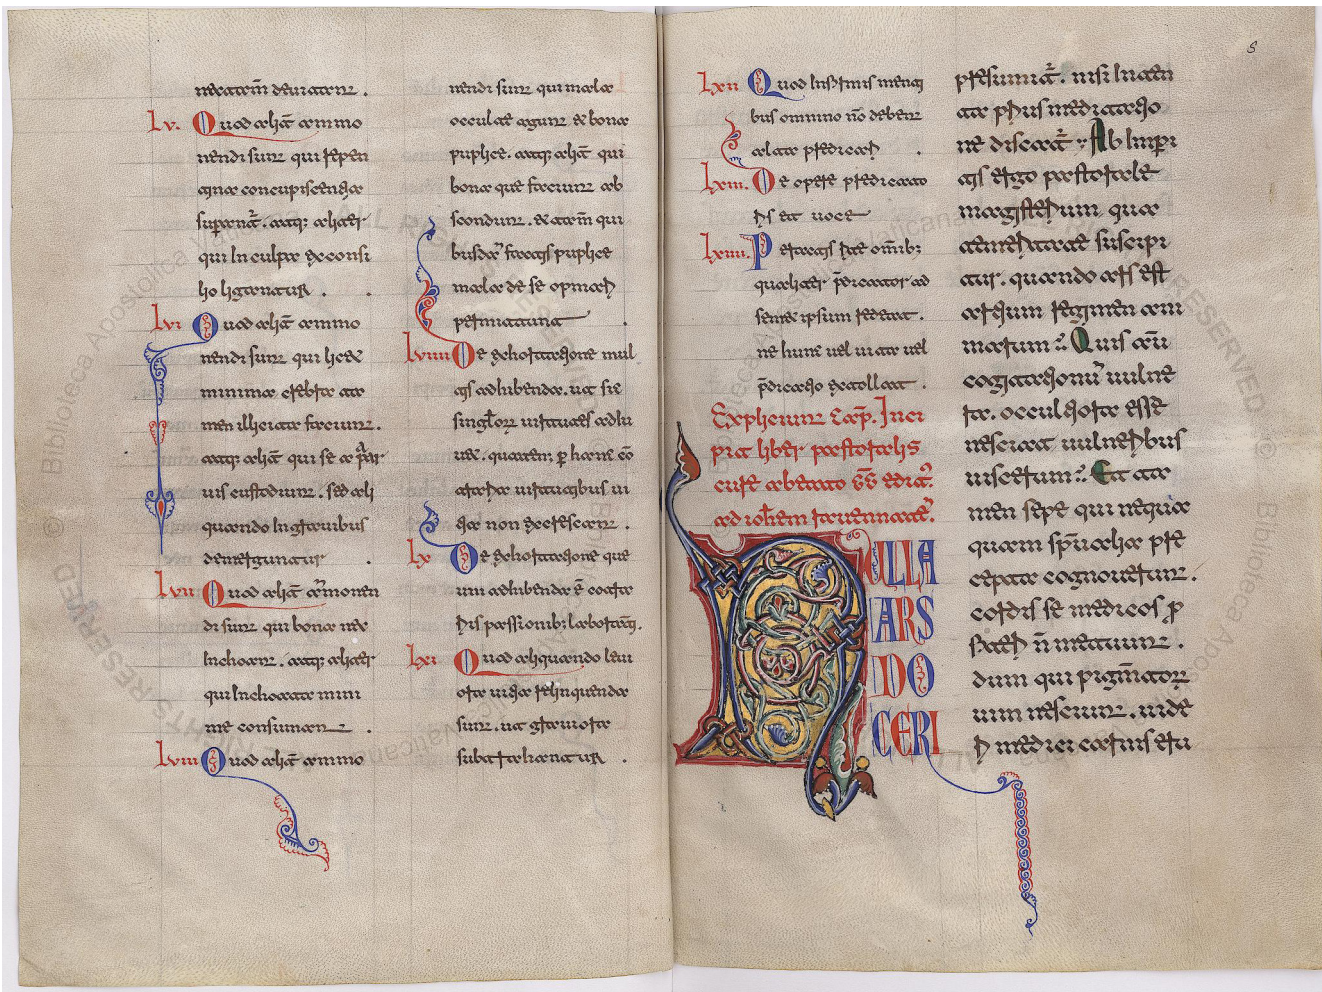 nec tam̄ devitant.
Lv. Quod alit̄ ammo
nendi sunt qui repen
tina concupiscentia
superant̄. atq; aliter
qui in culpa ex consi
lio ligantur.
Lvi Quod alit̄ ammo
nendi sunt qui licet
minima crebro ta
men illicita faciunt.
atq; alit̄ qui se a par
vis custodiunt. sed ali
quando in gravibus
demerguntur.
Lvii Quod alit̄ am̄monen
di sunt qui bona nec
inchoant. atq; aliter
qui inchoata mini
me consumant.
Lviii Quod alit̄ ammo
nendi sunt qui mala
occulte agunt et bona
puplice. atq; alit̄ qui
bona que faciunt ab
scondunt. et tam̄ qui
busda᷒ factis puplice
mala de se opinari
permittunt.
Lviiii De exhortatione mul
tis adhibenda. ut sic
singlor̄ virtutes adiu
vet. quaten; p̱ hanc cō
traria virtutibus vi
tia non excrescant.
Lx De exhortatione que
uni adhibenda ē contra
riis passionib; laboranti.
Lxi Quod aliquando levi
ora vitia relinquenda
sunt. ut graviora
subtrahantur.
8
Lxii Quod infirmis menti
bus omnino nō debent
alta predicari.
Lxiii. De opere predicatio
nis et voce
Lxiiii. Peractis rite omīb;
qualiter p̄dicator ad
semet ipsum redeat.
ne hunc vel vita vel
p̄dicatio extollat.
Expliciunt Cap̄. Inci
pit liber pastoralis
cure a beato GG̅ edit̄.
ad ioh̄em ravennatē.
NULLA
ARS
DO
CERI
presumit̄. nisi inten
ta prius meditatio
ne discat̄. Ab imperi
tis ergo pastorale
magisterium qua
temeritate suscipi
tur. quando ars est
artium regimen ani
marum. Quis aut̄
cogitationū vulne
ra. occultiora esse
nesciat vulneribus
viscerum. Et ta
men sepe qui nequa
quam spiritualia pre
cepta cognoverunt.
cordis se medicos p̱
fiteri n̄ metuunt.
dum qui pigm̄toru
vim nesciunt. vide
ri medici carnis eru